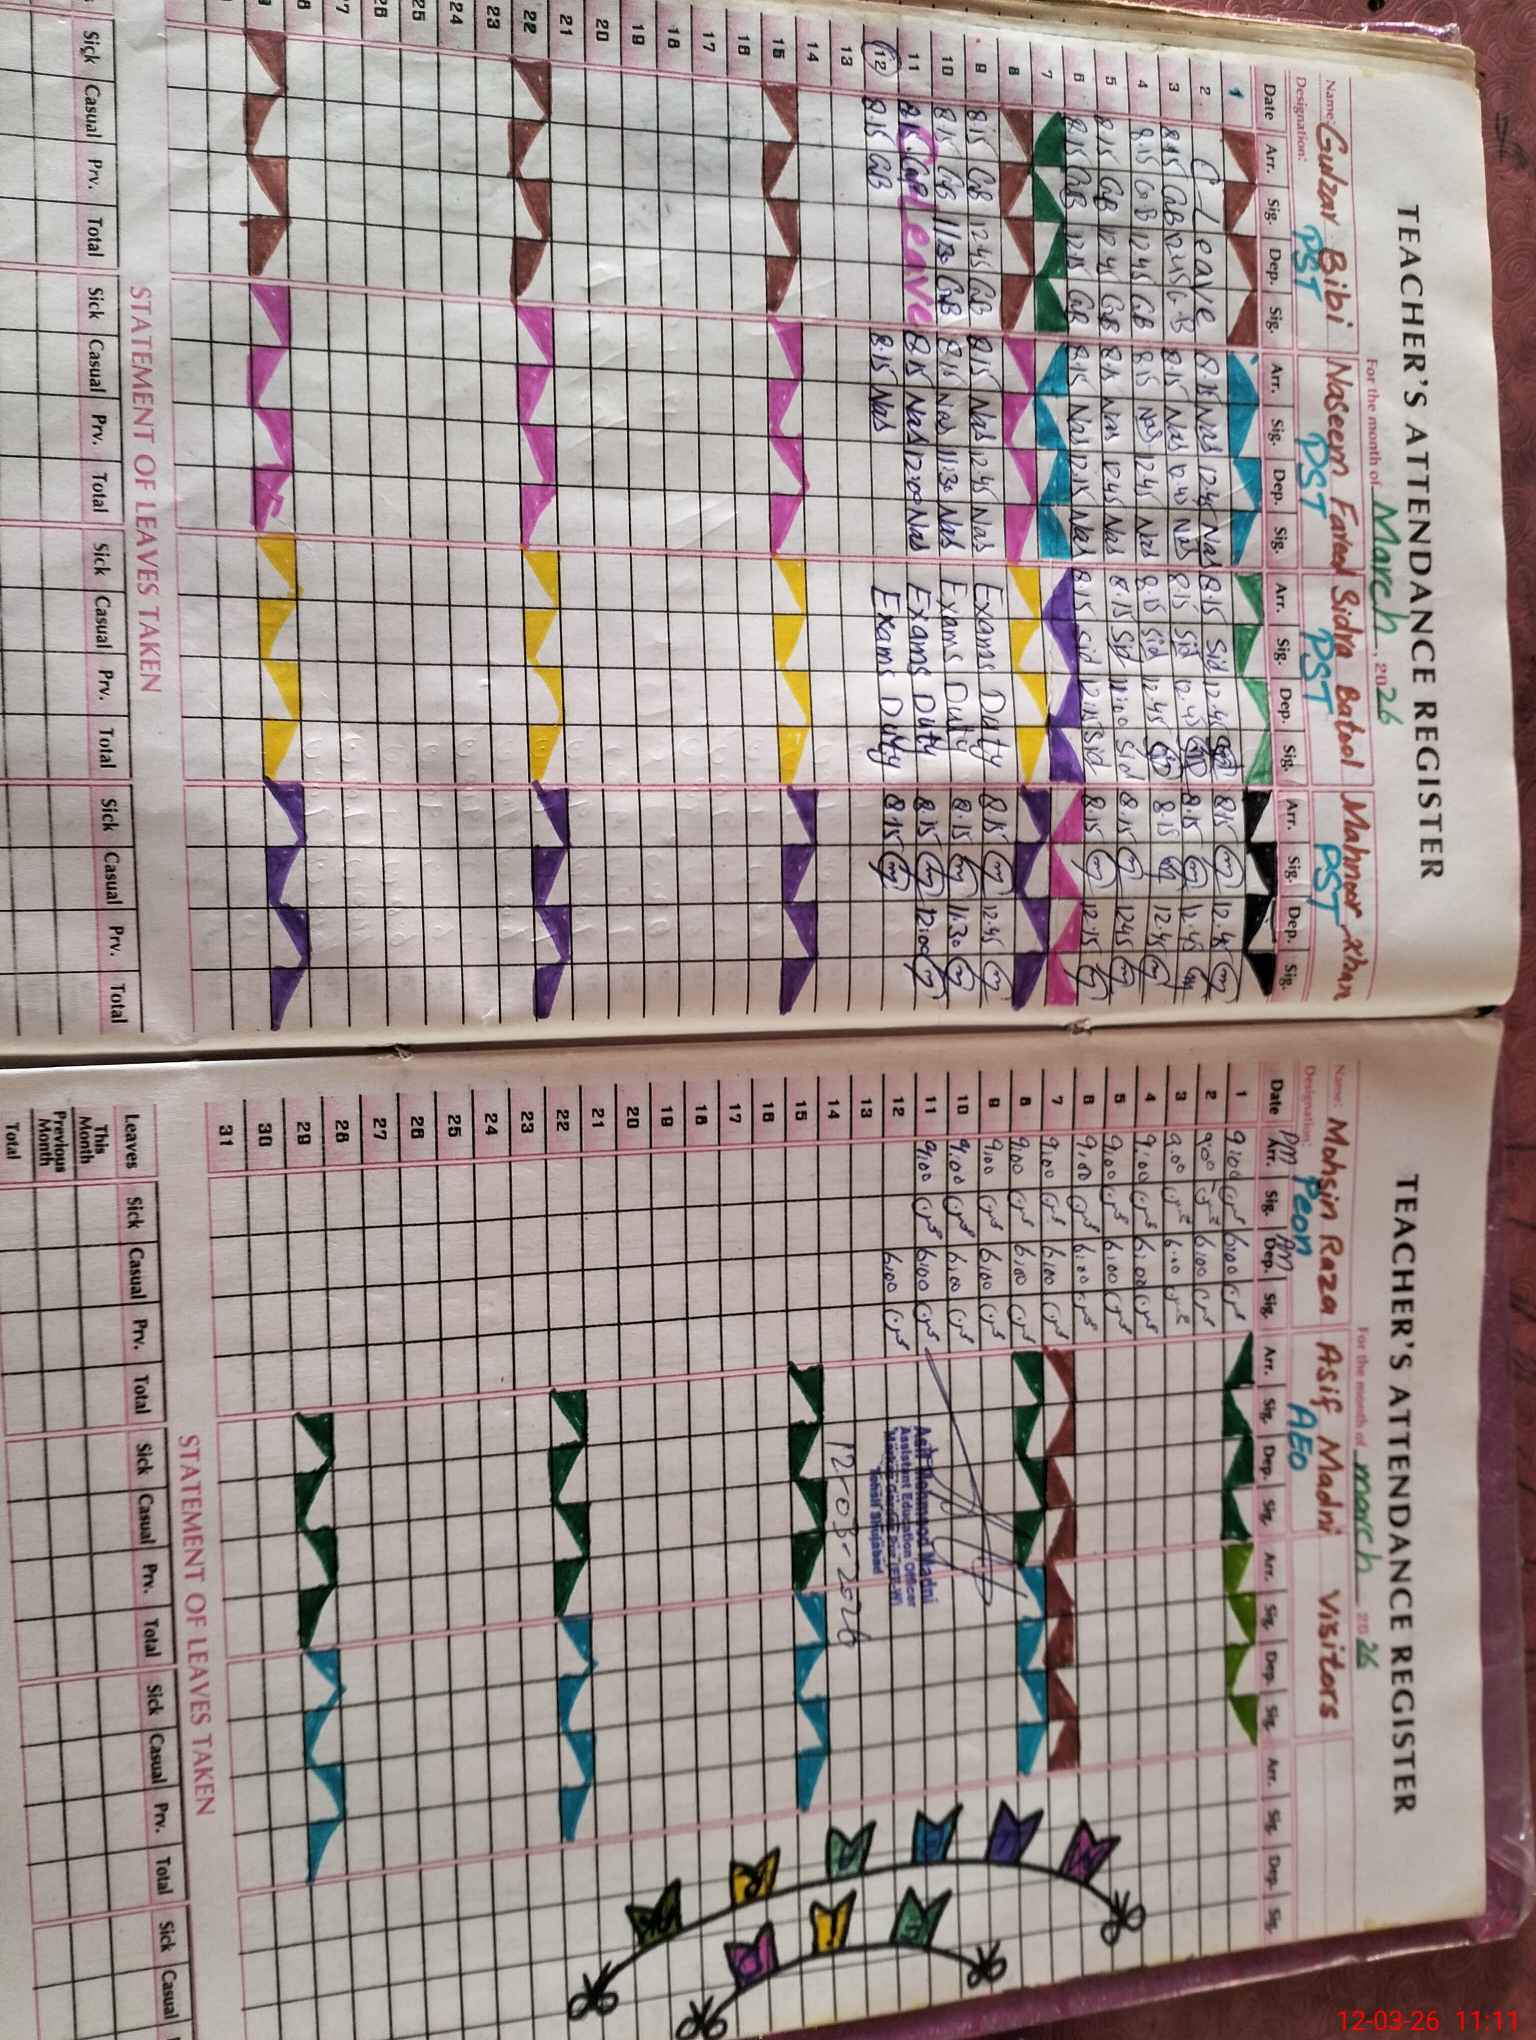 TEACHER'S ATTENDANCE REGISTER
For the month of March, 2026
Name: Gulzar Bibi Naseem Fareed Sidra Batool Mahnoor Khan
Designation: PST PST PST PST
Date Arr. Sig. Dep. Sig. Arr. Sig. Dep. Sig. Arr. Sig. Dep. Sig. Arr. Sig. Dep. Sig.
1
2 C-Leave 8:15 Nas 12:45 Nas 8:15 Sid 12:45 8:15 12:45
3 8:15 GB 12:45 GB 8:15 Nas 12:45 Nas 8:15 Sid 12:45 8:15 12:45
4 8:15 GB 12:45 GB 8:15 Nas 12:45 Nas 8:15 Sid 12:45 8:15 12:45
5 8:15 GB 12:45 GB 8:15 Nas 12:45 Nas 8:15 Sid 11:00 Sid 8:15 12:45
6 8:15 GB 12:15 GB 8:15 Nas 12:15 Nas 8:15 Sid 12:15 Sid 8:15 12:15
7
8
9 8:15 GB 12:45 GB 8:15 Nas 12:45 Nas Exams Duty 8:15 12:45
10 8:15 GB 11:30 GB 8:15 Nas 11:30 Nas Exams Duty 8:15 11:30
11 8:15 GB Leave 8:15 Nas 12:00 Nas Exams Duty 8:15 12:00
12 8:15 GB 8:15 Nas Exams Duty 8:15
13
14
15
16
17
18
19
20
21
22
23
24
25
26
27
28
STATEMENT OF LEAVES TAKEN
Sick Casual Prv. Total Sick Casual Prv. Total Sick Casual Prv. Total Sick Casual Prv. Total
TEACHER'S ATTENDANCE REGISTER
For the month of march 2026
Name: Mohsin Raza Asif Madni Visitors
Designation: Peon AEO
PM AM
Date Arr. Sig. Dep. Sig. Arr. Sig. Dep. Sig. Arr. Sig. Dep. Sig. Arr. Sig. Dep. Sig.
1 9:00 6:00
2 9:00 6:00
3 9:00 6:00
4 9:00 6:00
5 9:00 6:00
6 9:00 6:00
7 9:00 6:00
8 9:00 6:00
9 9:00 6:00
10 9:00 6:00
11 9:00 6:00
12 6:00
13
14
15
16
17
18
19
20
21
22
23
24
25
26
27
28
29
30
31
Asif Mehmood Madni
Assistant Education Officer
Tehsil Shujabad
12-03-2026
STATEMENT OF LEAVES TAKEN
Leaves Sick Casual Prv. Total Sick Casual Prv. Total Sick Casual Prv. Total Sick Casual
This Month
Previous Month
Total
12-03-26 11:11